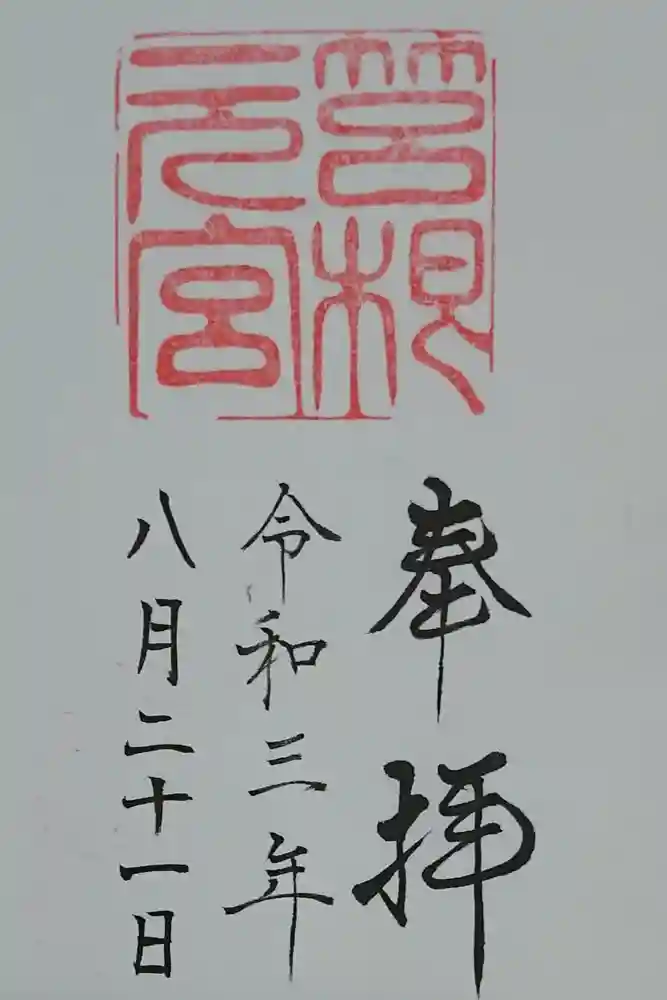 筥根
元宮
奉拝
令和三年
八月二十一日